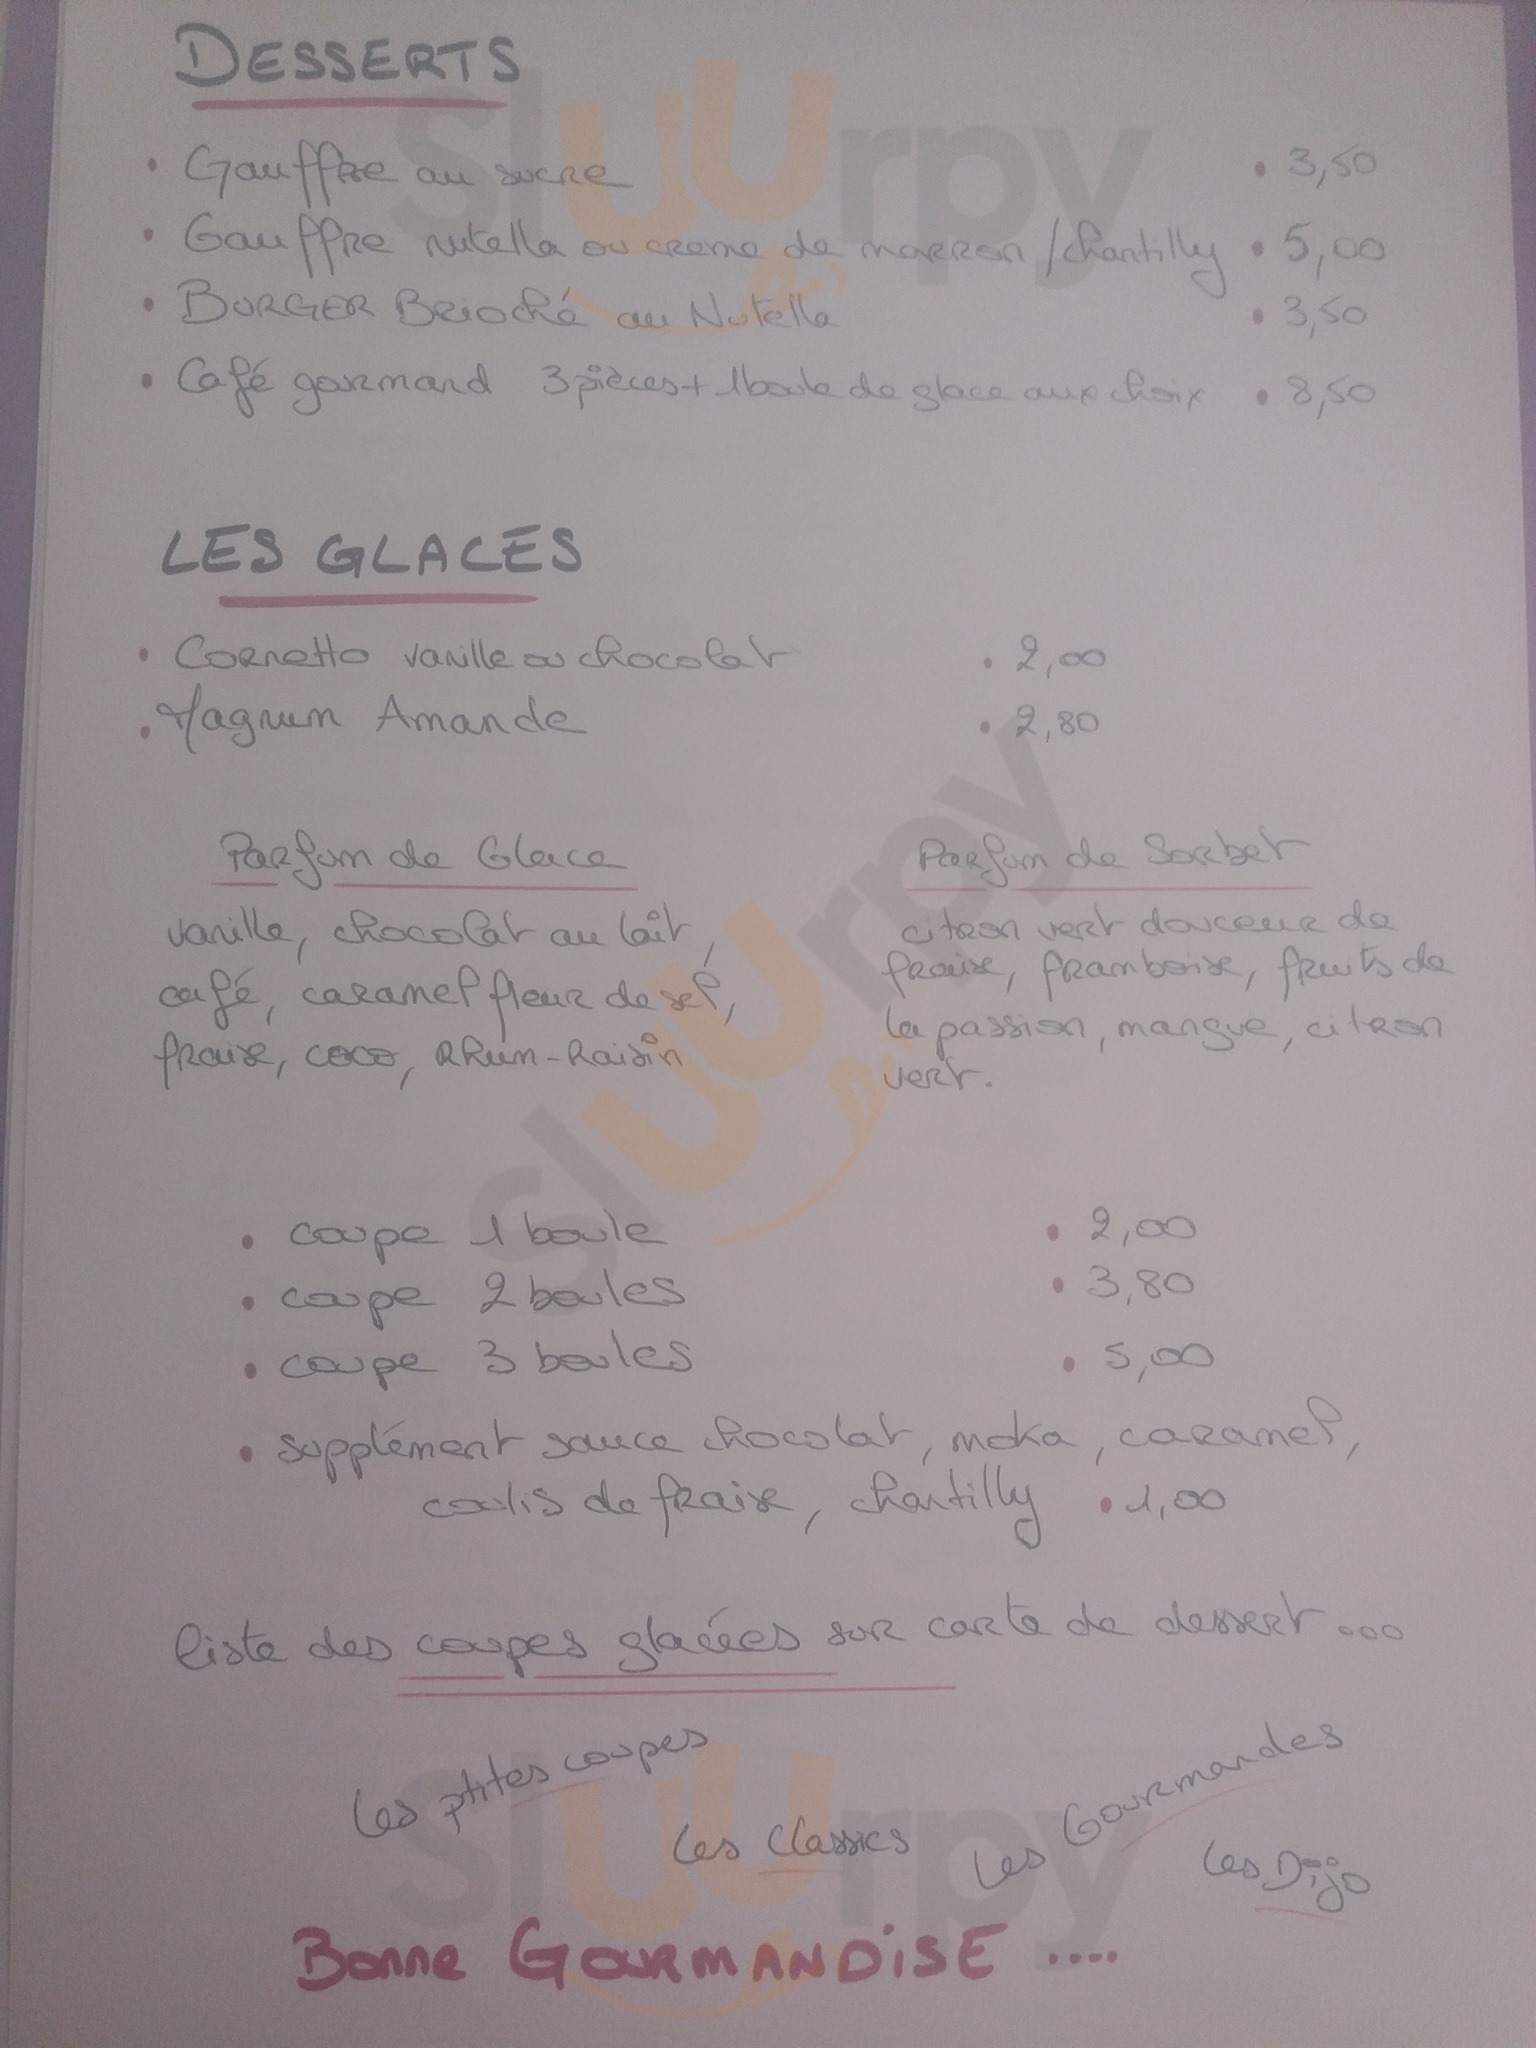 DESSERTS
• Gauffre au sucre • 3,50
• Gauffre nutella ou creme de marron / chantilly • 5,00
• BURGER Brioché au Nutella • 3,50
• Café gourmand 3 pièces + 1 boule de glace aux choix • 8,50
LES GLACES
• Cornetto vanille ou chocolat • 2,00
• Magnum Amande • 2,80
Parfum de Glace
vanille, chocolat au lait,
café, caramel fleur de sel,
fraise, coco, Rhum-Raisin
Parfum de Sorbet
citron vert douceur de
fraise, framboise, fruits de
la passion, mangue, citron
vert.
• coupe 1 boule • 2,00
• coupe 2 boules • 3,80
• coupe 3 boules • 5,00
• supplément sauce chocolat, moka, caramel,
coulis de fraise, chantilly • 1,00
liste des coupes glacées sur carte de dessert ...
Les ptites coupes
Les Classics
Les Gourmandes
Les Dijo
Bonne GOURMANDiSE ....
sluurpy
sluurpy
sluurpy